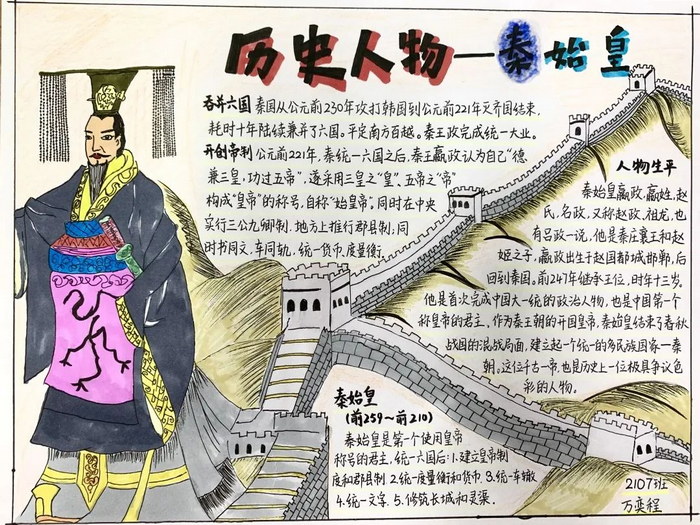 历史人物—秦始皇
吞并六国 秦国从公元前230年攻打韩国到公元前221年灭齐国结束,
耗时十年陆续兼并了六国。平定南方百越。秦王政完成统一大业。
开创帝制 公元前221年,秦统一六国之后,秦王嬴政认为自己“德
兼三皇,功过五帝”,遂采用三皇之“皇”、五帝之“帝”
构成“皇帝”的称号,自称“始皇帝”。同时在中央
实行三公九卿制,地方上推行郡县制,同
时书同文,车同轨,统一货币、度量衡
人物生平
秦始皇嬴政,嬴姓,赵
氏,名政,又称赵政、祖龙,也
有吕政一说,他是秦庄襄王和赵
姬之子,嬴政出生于赵国都城邯郸,后
回到秦国。前247年继承王位,时年十三岁。
他是首次完成中国大一统的政治人物,也是中国第一个
称皇帝的君主。作为秦王朝的开国皇帝,秦始皇结束了春秋
战国的混战局面,建立起个统一的多民族国家一秦
朝。这位千古一帝,也是历史上一位极具争议色
彩的人物。
秦始皇
(前259~前210)
秦始皇是第一个使用皇帝
称号的君主,统一六国后:1.建立皇帝制
度和郡县制 2.统一度量衡和货币 3.统一车辙
4.统一文字. 5.修筑长城和灵渠.
2107班
万奕程